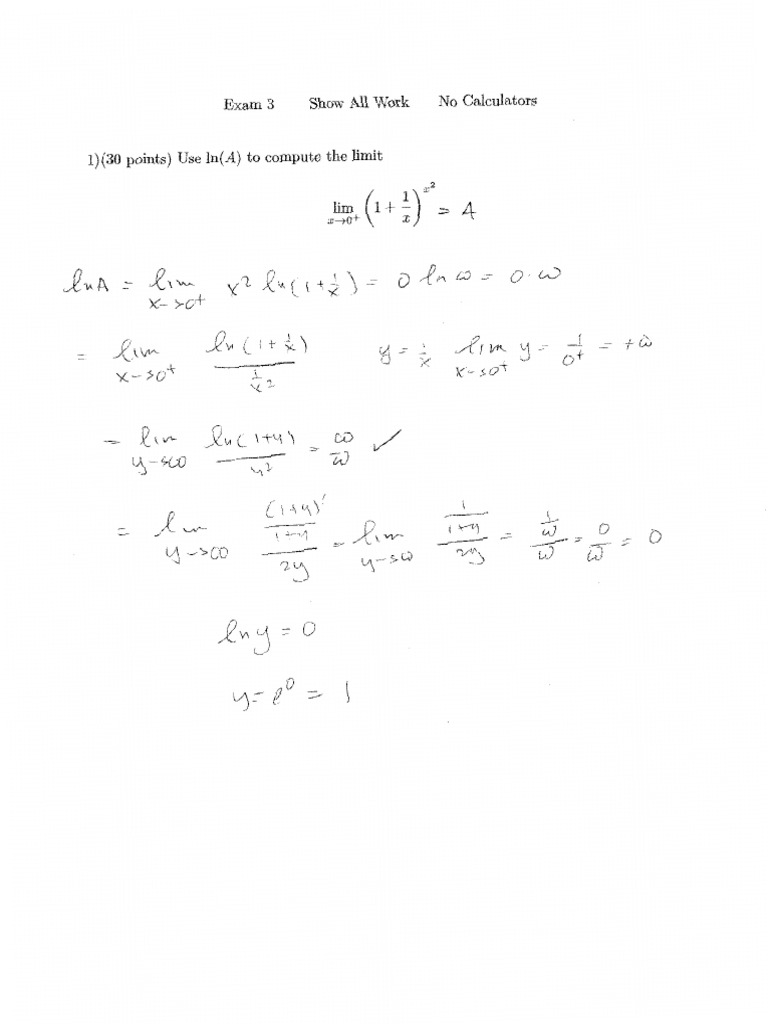 Exam 3 Show All Work No Calculators
1)(30 points) Use ln(A) to compute the limit
lim x→0⁺ (1 + 1/x)^x² = A
lnA = lim x->0⁺ x² ln(1+1/x) = 0 ln ∞ = 0·∞
= lim x->0⁺ ln(1+1/x) / (1/x²) y = 1/x lim x->0⁺ y = 1/0⁺ = +∞
= lim y->∞ ln(1+y) / y² = ∞/∞ ✓
= lim y->∞ ((1+y)'/(1+y)) / 2y = lim y->∞ (1/(1+y)) / 2y = (1/∞)/∞ = 0/∞ = 0
ln y = 0
y = e⁰ = 1